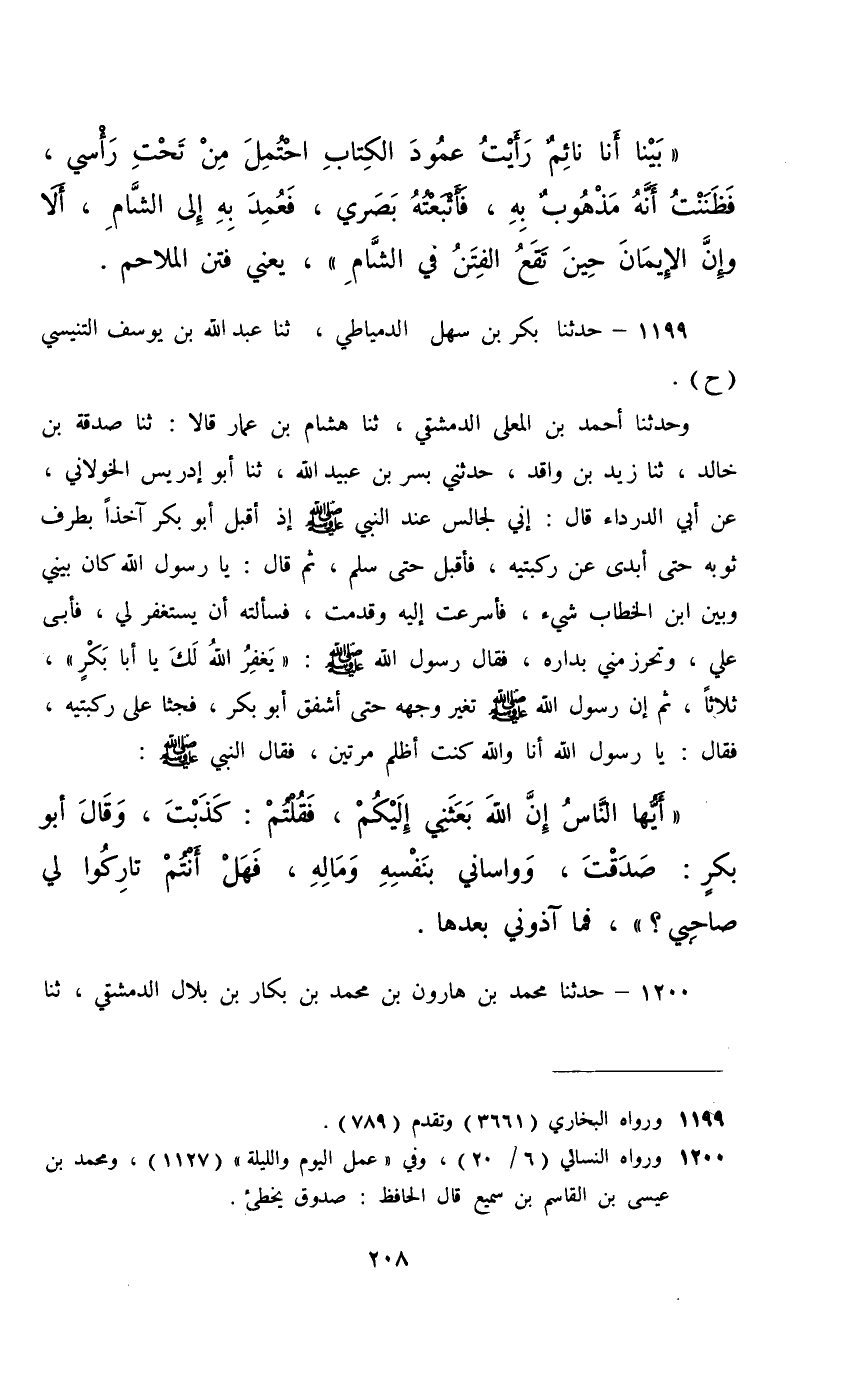 « بَيْنا أَنا نائِمٌ رَأَيْتُ عمُودَ الكِتابِ احْتُمِلَ مِنْ تَحْتِ رَأْسي ،
فَظَنَنْتُ أَنَّهُ مَذْهُوبٌ بِهِ ، فَأَتْبَعْتُهُ بَصَري ، فَعُمِدَ بِهِ إِلى الشَّامِ ، أَلَا
وإِنَّ الإِيمَانَ حِينَ تَقَعُ الفِتَنُ في الشَّامِ » ، يعني فتن الملاحم .
١١٩٩ – حدثنا بكر بن سهل الدمياطي ، ثنا عبد الله بن يوسف التنيسي
(ح) .
وحدثنا أحمد بن المعلى الدمشقي ، ثنا هشام بن عمار قالا : ثنا صدقة بن
خالد ، ثنا زيد بن واقد ، حدثني بسر بن عبيد الله ، ثنا أبو إدريس الخولاني ،
عن أبي الدرداء قال : إني لجالس عند النبي ﷺ إذ أقبل أبو بكر آخذاً بطرف
ثوبه حتى أبدى عن ركبتيه ، فأقبل حتى سلم ، ثم قال : يا رسول الله كان بيني
وبين ابن الخطاب شيء ، فأسرعت إليه وقدمت ، فسألته أن يستغفر لي ، فأبى
علي ، وتحرز مني بداره ، فقال رسول الله ﷺ : « يَغفِرُ اللهُ لَكَ يا أبا بَكْرٍ » ،
ثلاثاً ، ثم إن رسول الله ﷺ تغير وجهه حتى أشفق أبو بكر ، فجثا على ركبتيه ،
فقال : يا رسول الله أنا والله كنت أظلم مرتين ، فقال النبي ﷺ :
« أَيُّها النَّاسُ إِنَّ اللهَ بَعَثَنِي إِلَيْكُمْ ، فَقُلْتُمْ : كَذَبْتَ ، وَقَالَ أبو
بكرٍ : صَدَقْتَ ، وَواساني بنَفْسِهِ وَمَالِهِ ، فَهَلْ أَنْتُمْ تارِكُوا لي
صاحِبي ؟ » ، فما آذوني بعدها .
١٢٠٠ – حدثنا محمد بن هارون بن محمد بن بكار بن بلال الدمشقي ، ثنا
١١٩٩ ورواه البخاري (٣٦٦١) وتقدم (٧٨٩) .
١٢٠٠ ورواه النسائي (٦ / ٢٠) ، وفي « عمل اليوم والليلة » (١١٢٧) ، ومحمد بن
عيسى بن القاسم بن سميع قال الحافظ : صدوق يخطئ .
٢٠٨